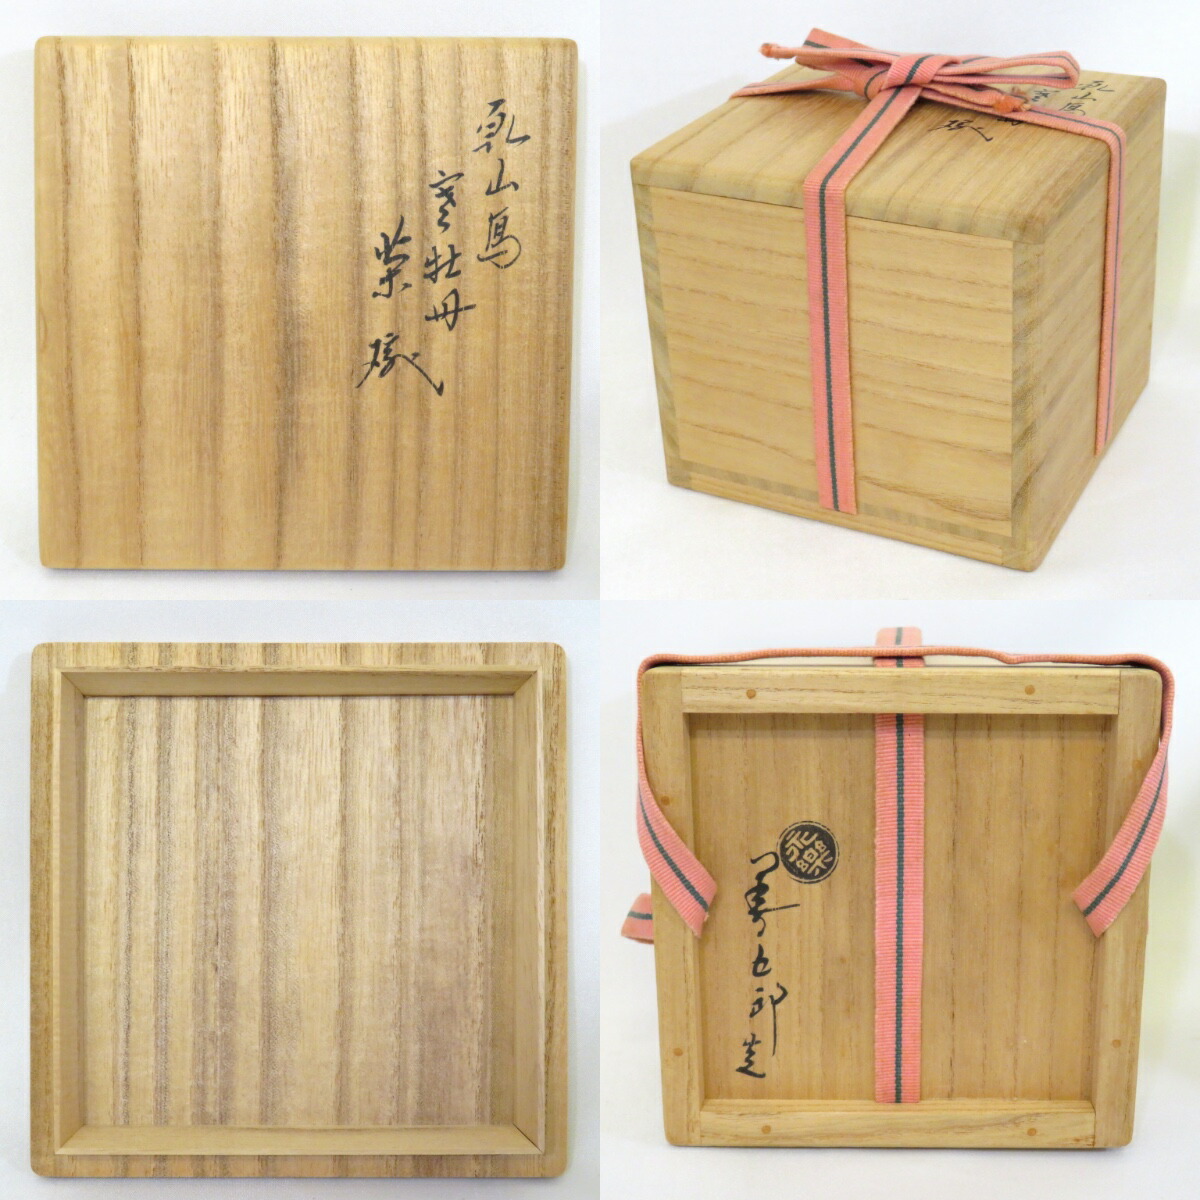 乾山写
寒牡丹
茶碗
永樂
善五郎造